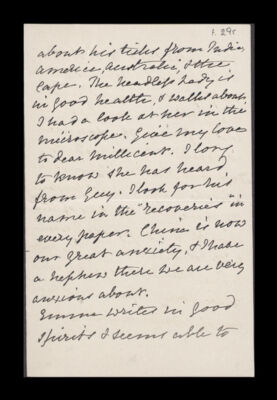 f. 29r
about his ticks from India,
America, Australia, & the
Cape. The headless Lady is
in good health, & walks about.
I had a look at her in the
microscope. Give my love
to dear Millicent. I long
to know she has heard
from Guy. I look for his
name in the "recoveries" in
every paper. China is now
our great anxiety, & I have
a nephew there we are very
anxious about.
Emma writes in good
spirits & seems able to